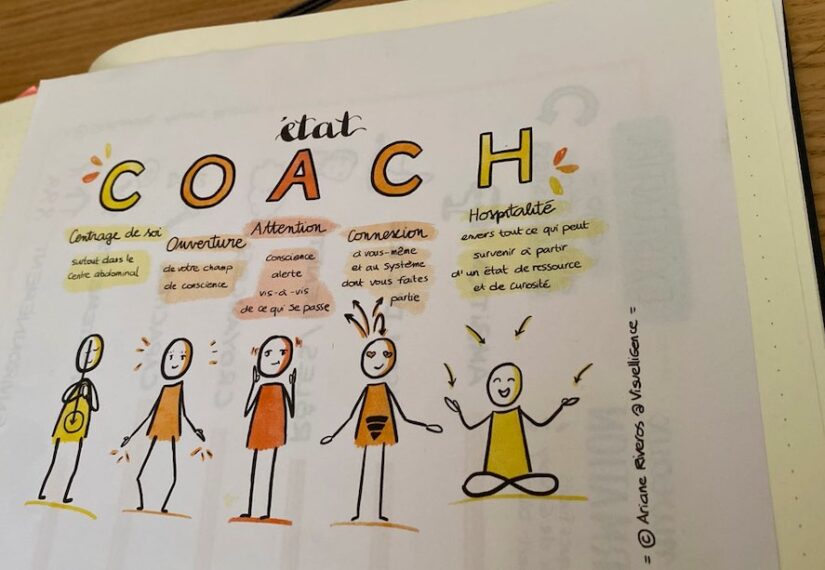 état
COACH
Centrage de soi
surtout dans le
centre abdominal
Ouverture
de votre champ
de conscience
Attention
conscience
alerte
vis-à-vis
de ce qui se passe
Connexion
à vous-même
et au système
dont vous faites
partie
Hospitalité
envers tout ce qui peut
survenir à partir
d'un état de ressource
et de curiosité
= © Ariane Riveros @Visuelligence =